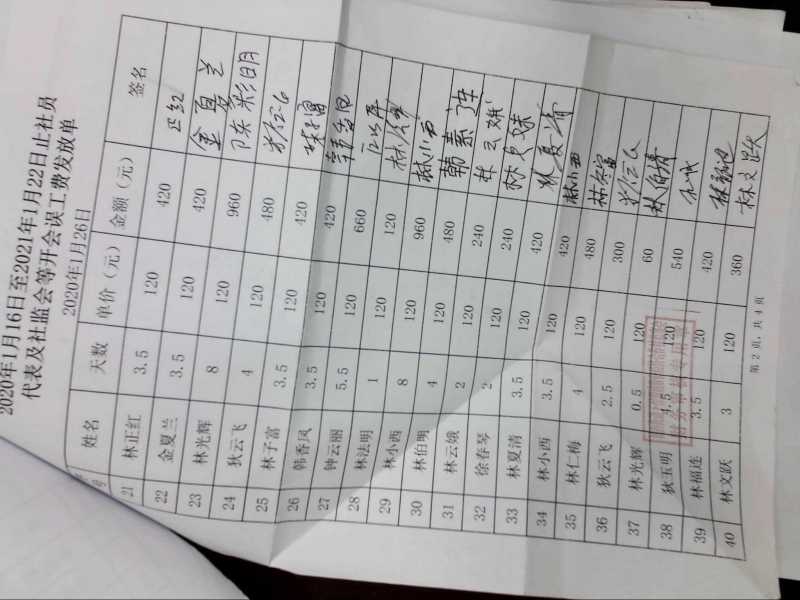 2020年1月16日至2021年1月22日止社员
代表及社监会等开会误工费发放单
2020年1月26日
号 姓名 天数 单价（元） 金额（元） 签名
21 林正红 3.5 120 420 正红
22 金夏兰 3.5 120 420 金夏兰
23 林光辉 8 120 960 陈彩明
24 狄云飞 4 120 480
25 林子富 3.5 120 420 林子富
26 韩香凤 3.5 120 420
27 钟云丽 5.5 120 660
28 林法明 1 120 120
29 林小西 8 120 960 林小西
30 林伯明 4 120 480
31 林云娥 2 120 240 林云娥
32 徐春琴 2 120 240
33 林夏清 3.5 120 420 林夏清
34 林小西 3.5 120 420 林小西
35 林仁梅 4 120 480
36 狄云飞 2.5 120 300
37 林光辉 0.5 120 60
38 狄玉明 120 540
39 林福连 3.5 120 420
40 林文跃 3 120 360 林文跃
第 2 页，共 4 页